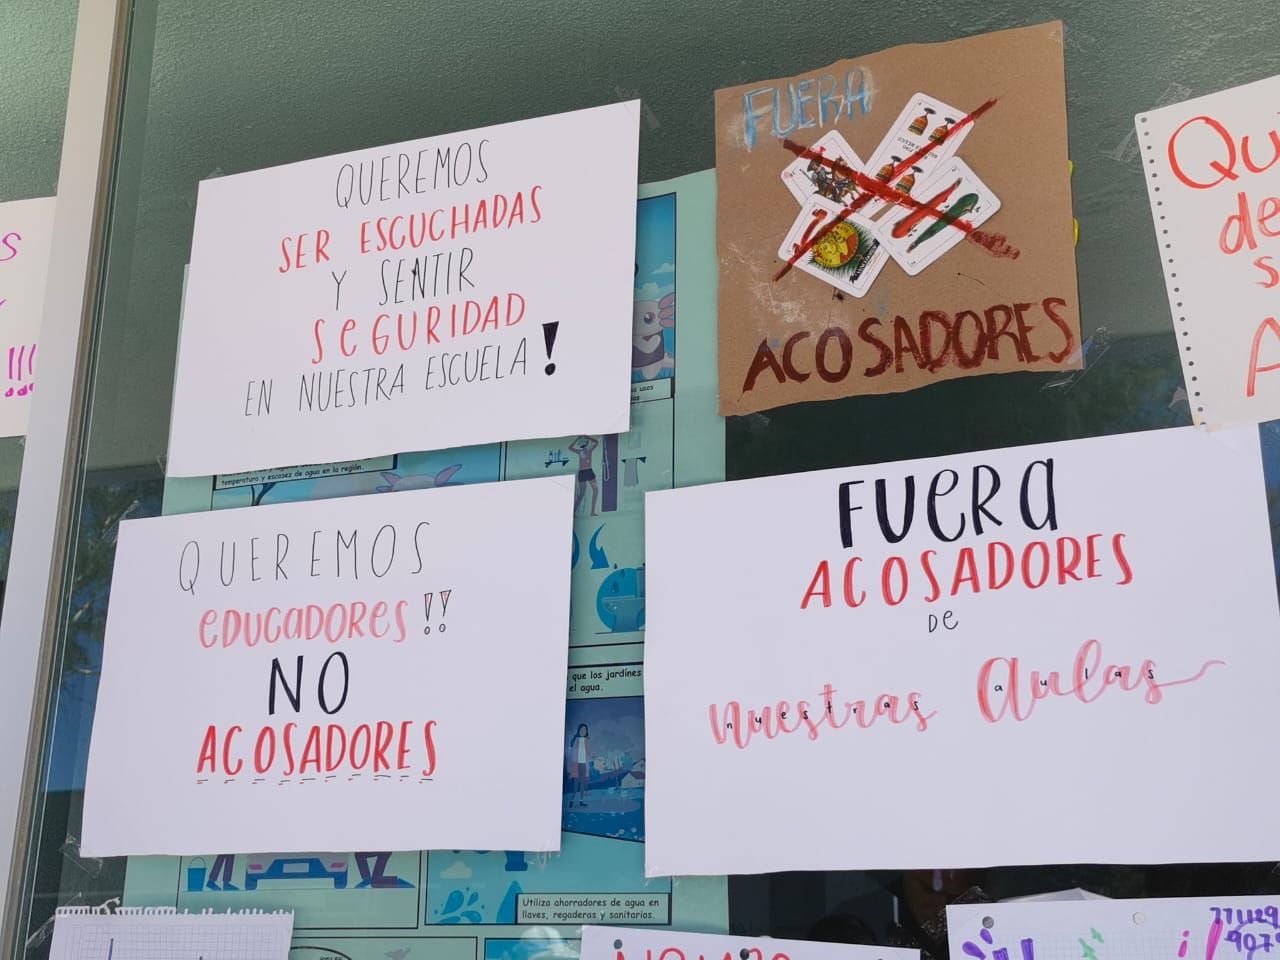 QUEREMOS
SER ESCUCHADAS
Y SENTIR
SeGURIDAD
EN NUESTRA ESCUELA!
FUERA
ACOSADORES
QUEREMOS
eDUCaDOReS!!
NO
ACOSADORES
FUeRa
ACOSADORES
De
nuestras Aulas
nuestras aulas
!!!
Qu
de
s
A
temperatura y escasez de agua en la región.
usos
que los jardines
el agua.
Utiliza ahorradores de agua en
llaves, regaderas y sanitarios.